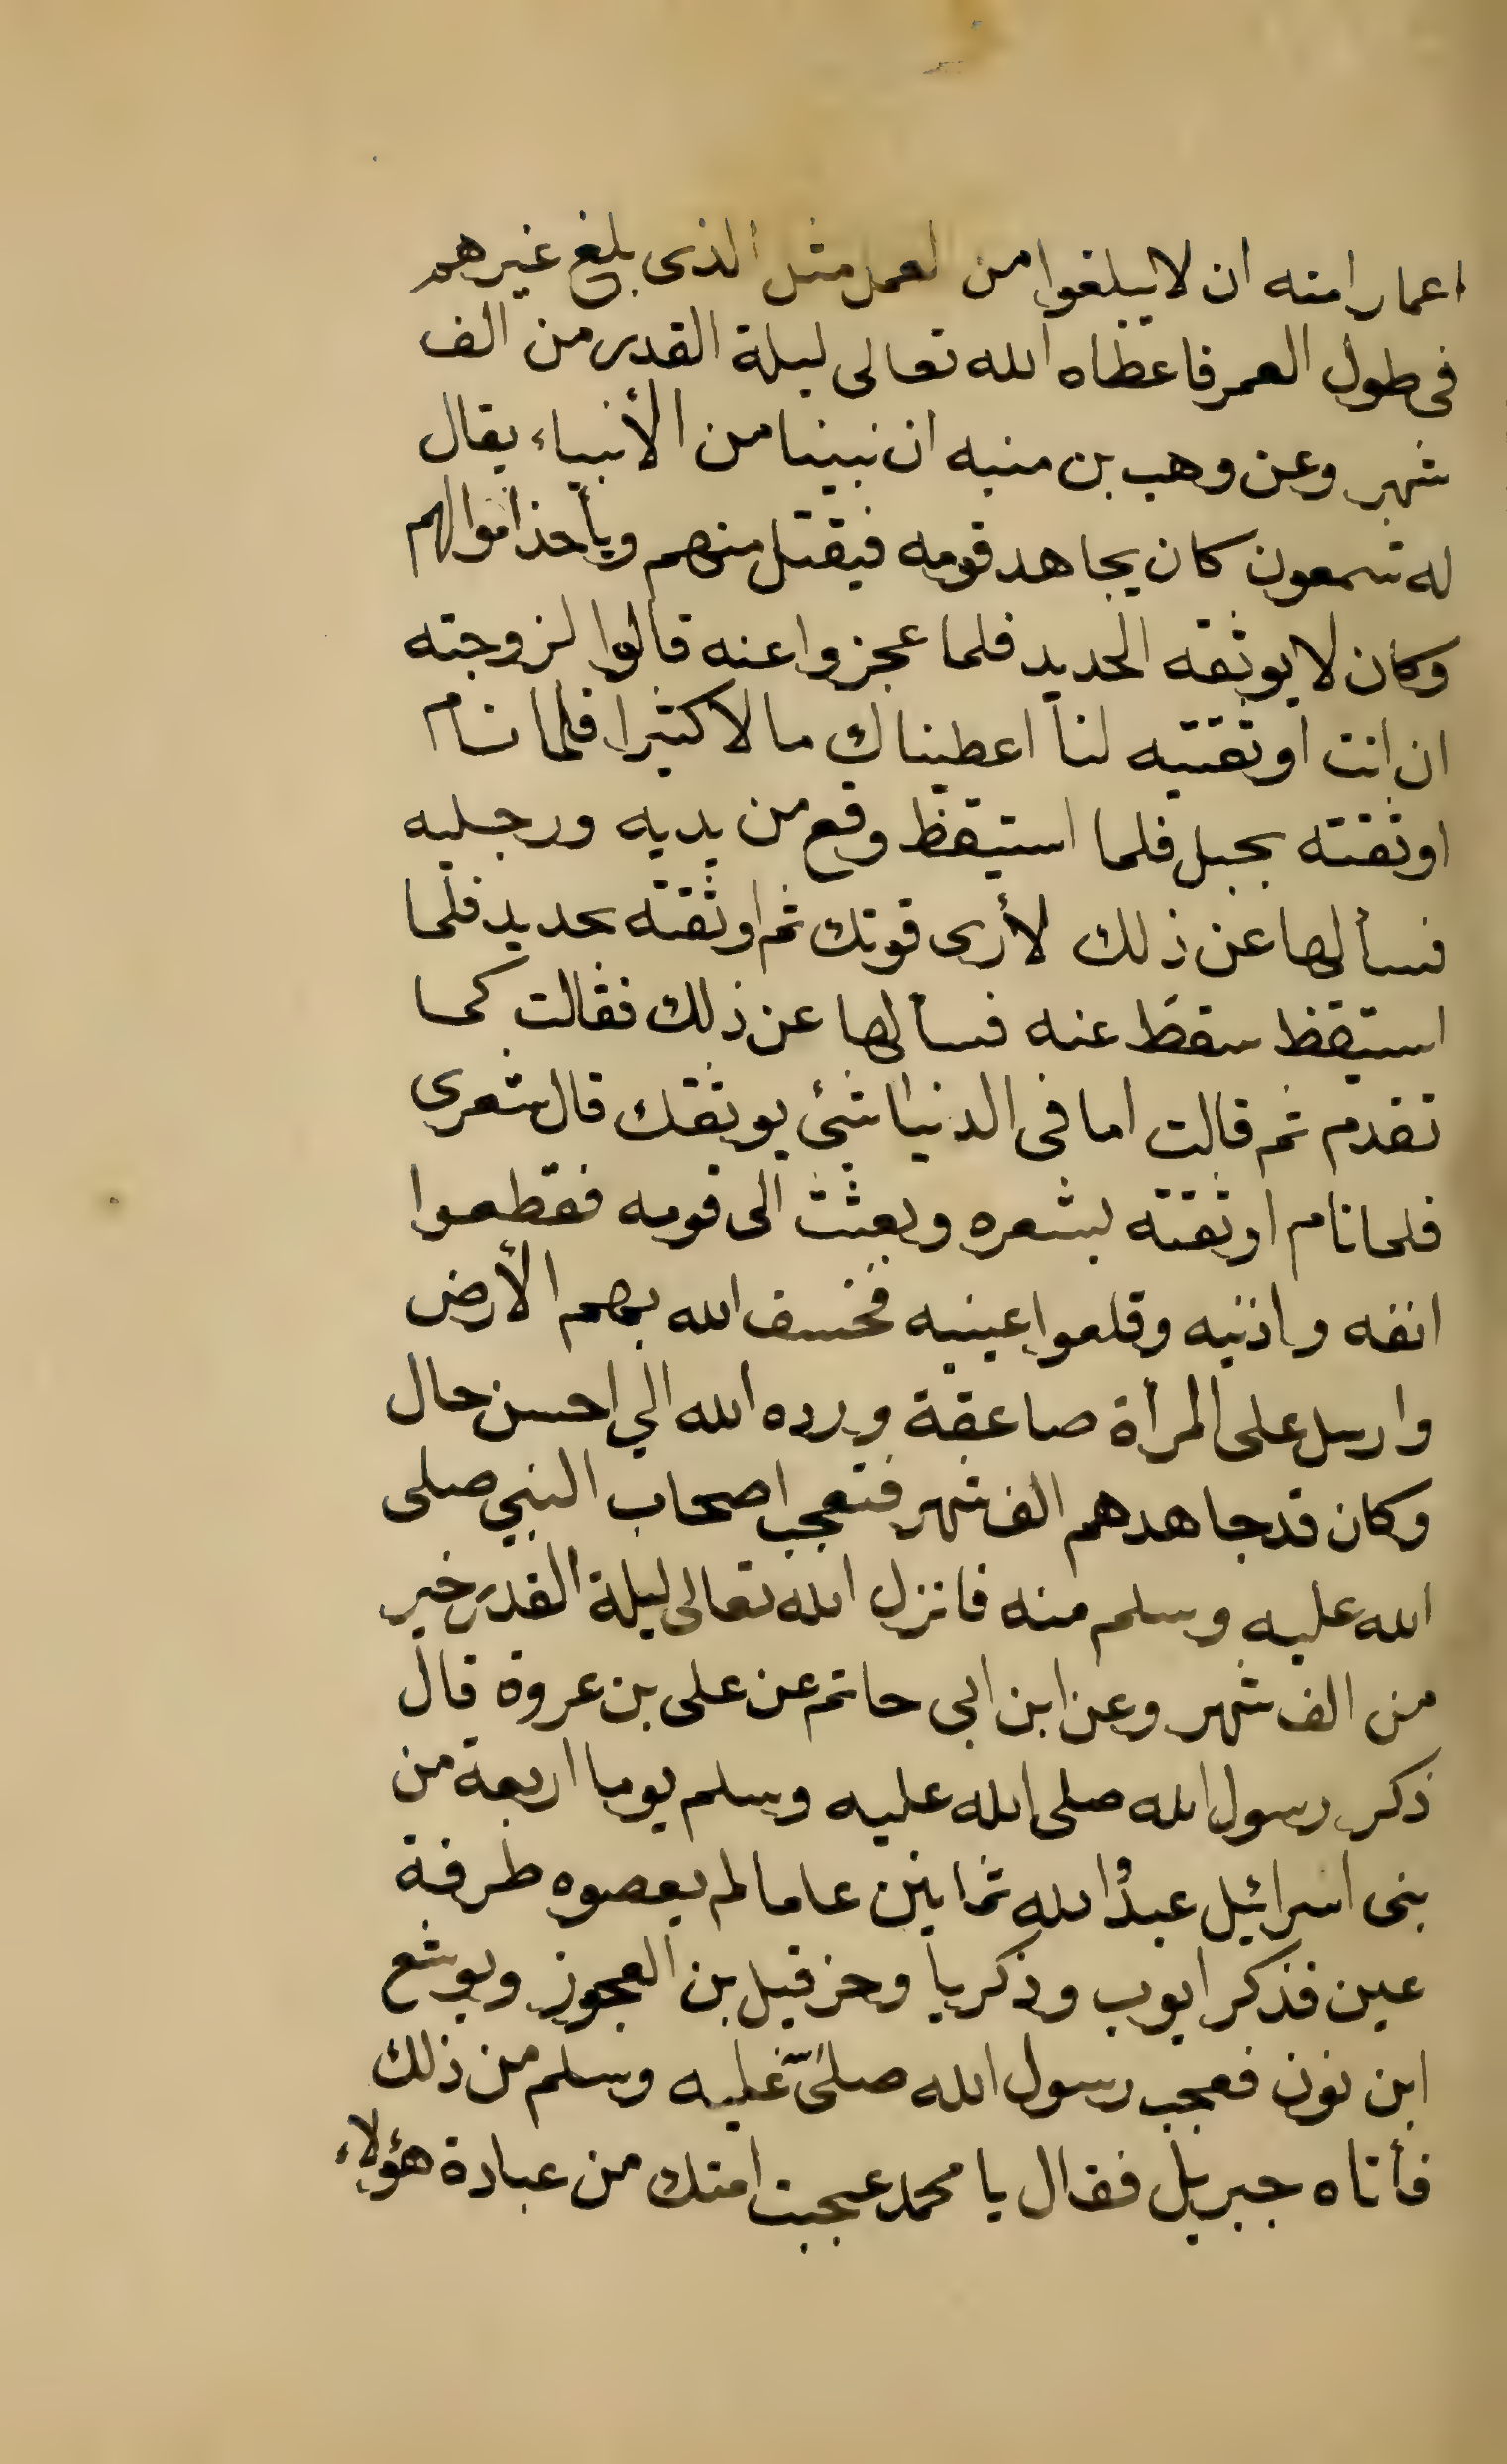 اعمار امته ان لا يبلغوا من لعمل مثل الذى بلغ غيرهم
فى طول العمر فاعطاه الله تعالى ليلة القدر من الف
شهر وعن وهب بن منبه ان نبينا من الأنبياء يقال
له شمعون كان يجاهد قومه فيقتل منهم ويأخذ اموالهم
وكان لا يوثقه الحديد فلما عجزوا عنه قالوا لزوجته
ان انت اوثقتيه لنا اعطيناك مالا كثيرا فلما نام
اوثقته بحبل فلما استيقظ وقع من يديه ورجليه
فسألها عن ذلك لأرى قوتك ثم اوثقته بحديد فلما
استيقظ سقط عنه فسألها عن ذلك فقالت كما
تقدم ثم قالت اما فى الدنيا شئ يوثقك قال شعرى
فلما نام اوثقته بشعره وبعثت الى قومه فقطعوا
انفه واذنيه وقلعوا عينيه فخسف الله بهم الأرض
وارسل على المرأة صاعقة ورده الله الي احسن حال
وكان قد جاهدهم الف شهر فتعجب اصحاب النبي صلى
الله عليه وسلم منه فانزل الله تعالى ليلة القدر خير
من الف شهر وعن ابن ابى حاتم عن على بن عروة قال
ذكر رسول الله صلى الله عليه وسلم يوما اربعة من
بنى اسرائيل عبدُا لله ثمانين عاما لم يعصوه طرفة
عين فذكر ايوب وذكريا وحزقيل بن العجوز ويوشع
ابن نون فعجب رسول الله صلىّ عليه وسلم من ذلك
فأتاه جبريل فقال يا محمد عجبت امتك من عبادة هؤلاء